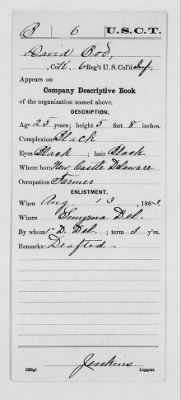 B 6 U.S.C.T.
David Bod,
Co. H, 6 Reg't U. S. Col'd Inf.
Appears on
Company Descriptive Book
of the organization named above.
DESCRIPTION.
Age 23 years; height 5 feet 8 inches.
Complexion Black
Eyes Black; hair Black
Where born New Castle Delaware
Occupation Farmer
ENLISTMENT.
When Aug. 13, 1863.
Where Smyrna Del.
By whom Del.; term 3 y'rs.
Remarks: Drafted.
Jenkins
Copyist.